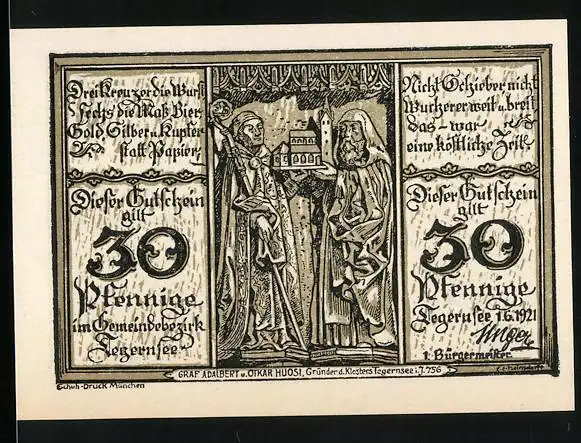 Drei Kreuzer die Wurst
sechs die Maß Bier,
Gold Silber u. Kupfer
statt Papier,
Dieser Gutschein
gilt
30
Pfennige
im Gemeindebezirk
Tegernsee
Nicht Schieber nicht
Wucherer weit u. breit
das - war
eine köstliche Zeit.
Dieser Gutschein
gilt
30
Pfennige
Tegernsee 1.6.1921
1. Bürgermeister
GRAF ADALBERT u. OTKAR HUOSI, Gründer d. Klosters Tegernsee i. J. 756
Schuh-Druck München